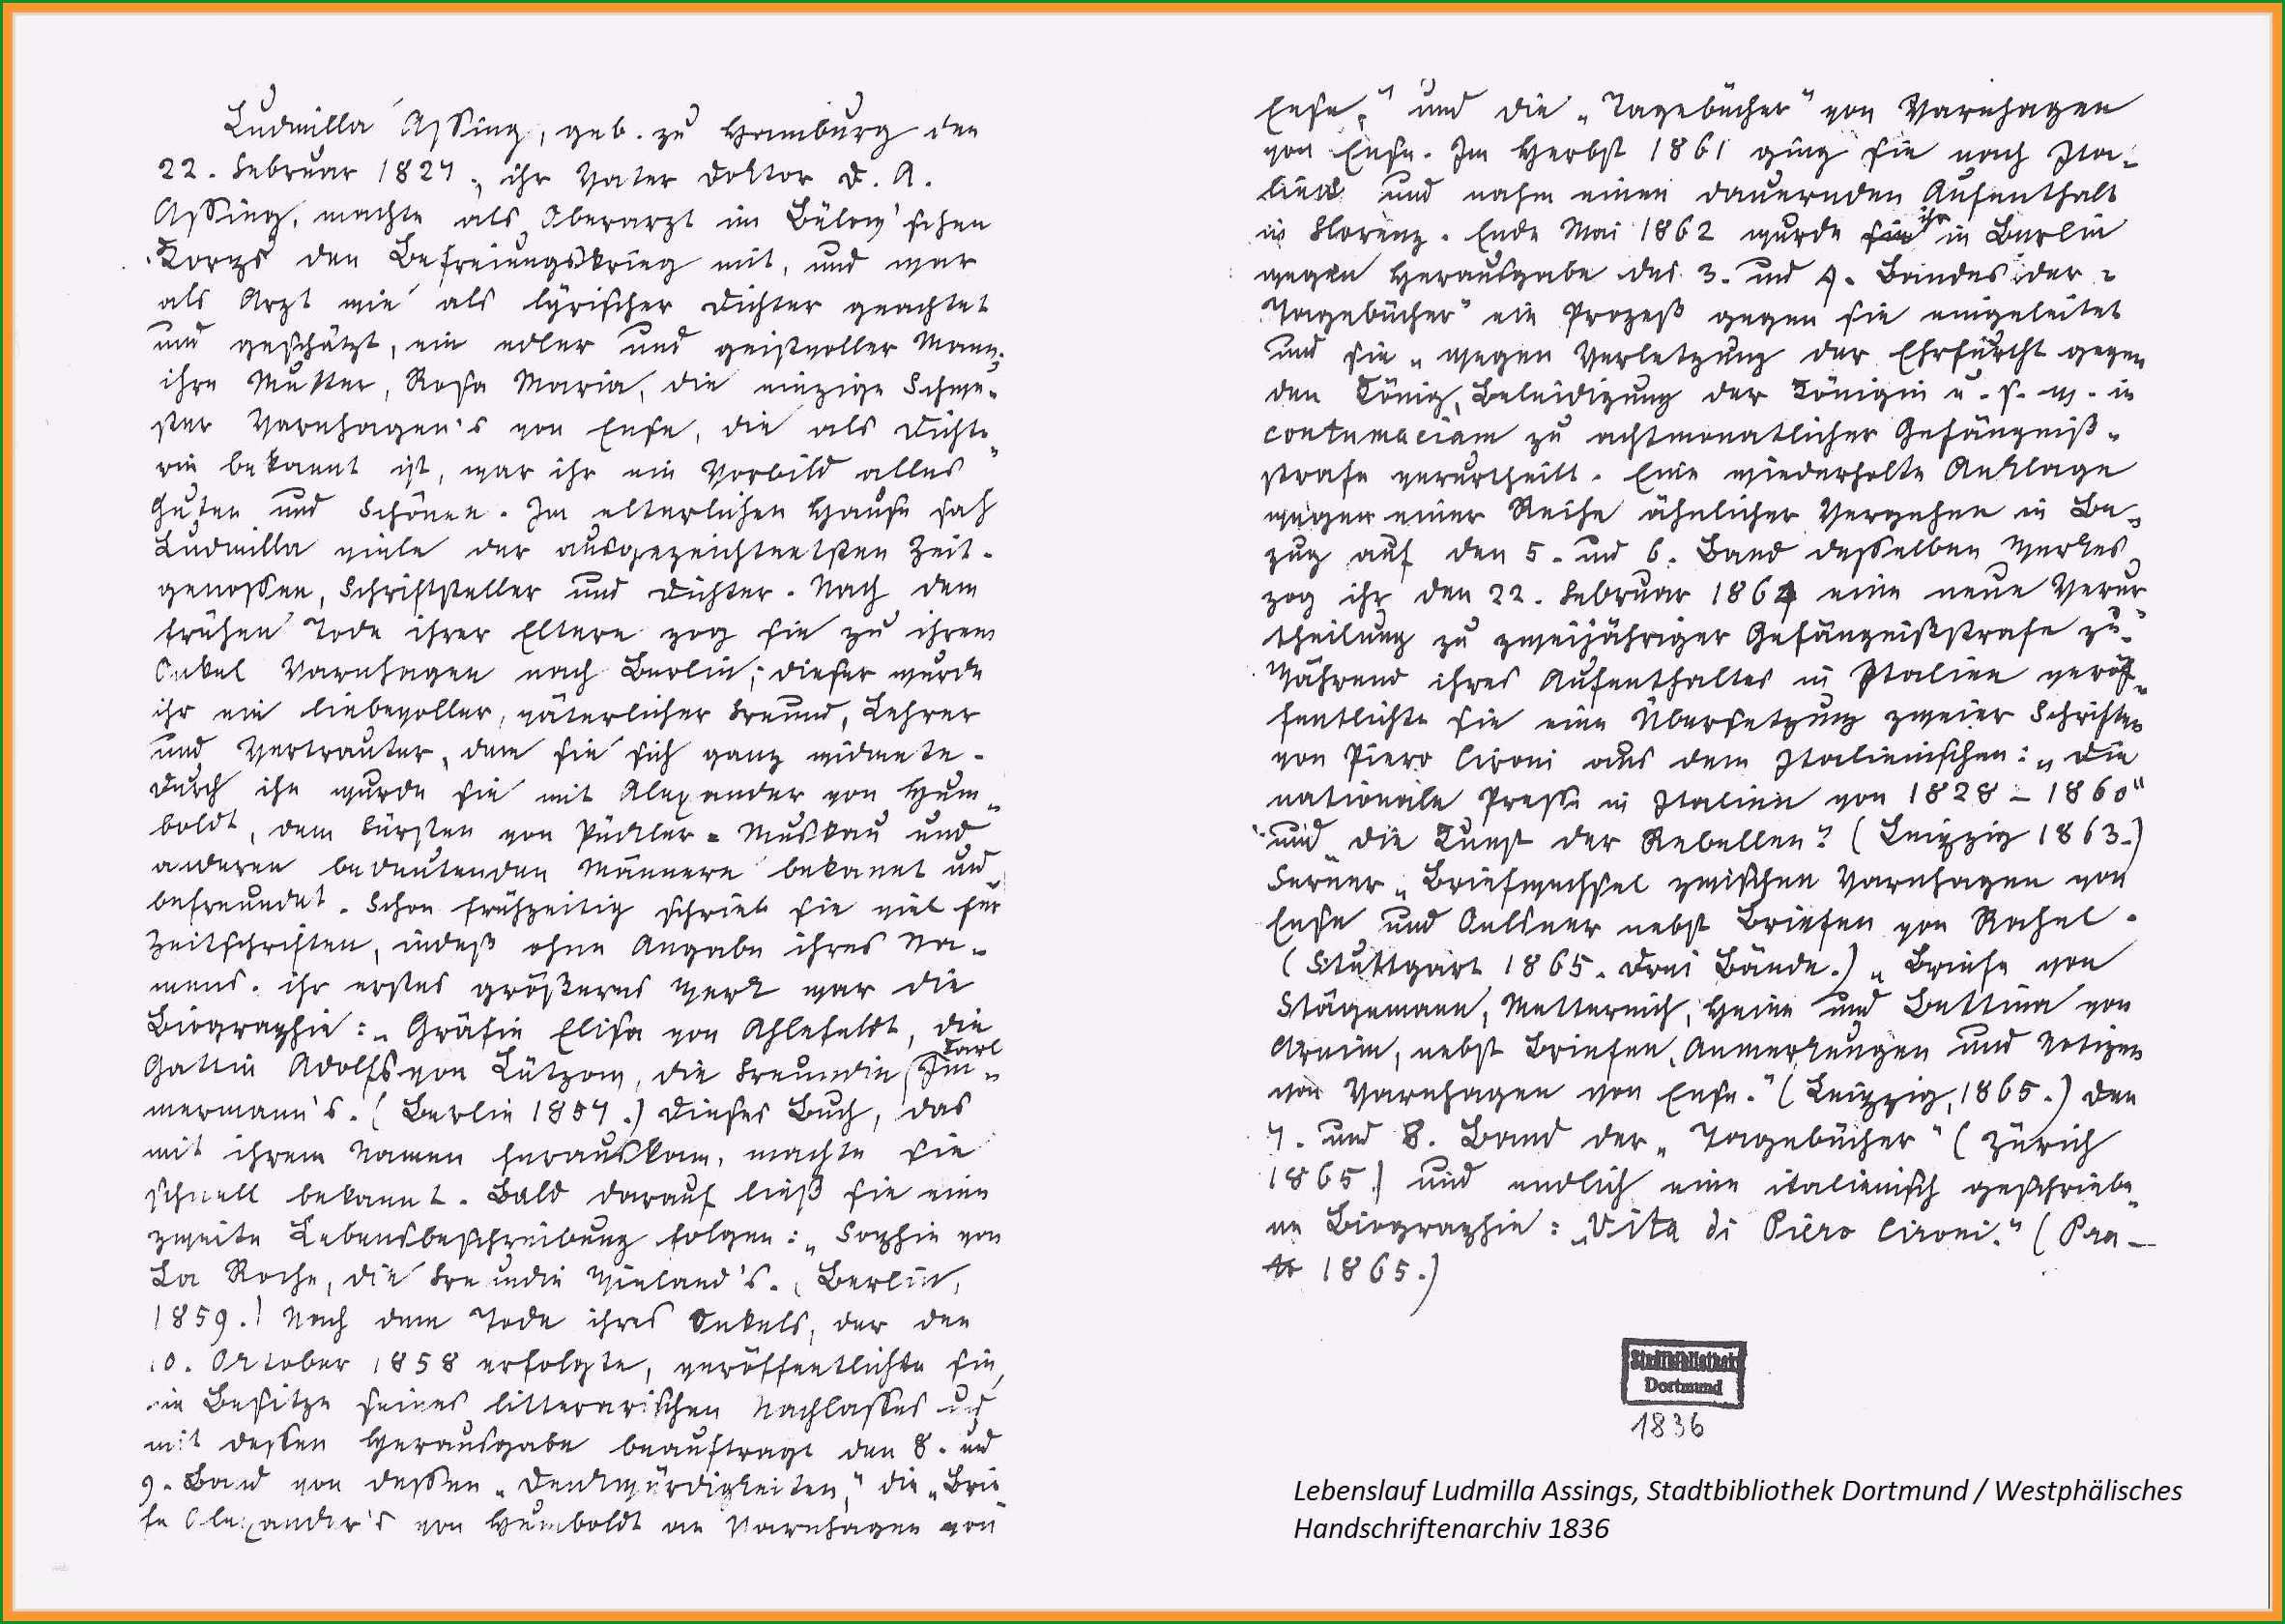 Ludmilla Assing, geb. zu Hamburg den
22. Februar 1827; ihr Vater Doktor D. A.
Assing, machte als Oberarzt im Bülow'schen
Korps den Befreiungskrieg mit, und war
als Arzt wie als lyrischer Dichter geachtet
und geschätzt, ein edler und geistvoller Mann;
ihre Mutter, Rosa Maria, die einzige Schwe-
ster Varnhagen's von Ense, die als Dichte-
rin bekannt ist, war ihr ein Vorbild alles
Guten und Schönen. Im elterlichen Hause sah
Ludmilla viele der ausgezeichnetsten Zeit-
genossen, Schriftsteller und Dichter. Nach dem
frühen Tode ihrer Eltern zog sie zu ihrem
Onkel Varnhagen nach Berlin; dieser wurde
ihr ein liebevoller, väterlicher Freund, Lehrer
und Vertrauter, dem sie sich ganz widmete.
Durch ihn wurde sie mit Alexander von Hum-
boldt, dem Fürsten von Pückler=Muskau und
anderen bedeutenden Männern bekannt und
befreundet. Schon frühzeitig schrieb sie viel für
Zeitschriften, indeß ohne Angabe ihres Na-
mens. ihr erstes größeres Werk war die
Biographie: „Gräfin Elisa von Ahlefeldt, die
Gattin Adolfs von Lützow, die Freundin Karl Im-
mermann's. (Berlin 1857.) Dieses Buch, das
mit ihrem Namen herauskam, machte sie
schnell bekannt. Bald darauf ließ sie eine
zweite Lebensbeschreibung folgen: „Sophie von
La Roche, die Freundin Wieland's. (Berlin,
1859.) Nach dem Tode ihres Onkels, der den
10. Oktober 1858 erfolgte, veröffentlichte sie,
im Besitze seines litterarischen Nachlasses und
mit dessen Herausgabe beauftragt den 8. und
9. Band von dessen „Denkwürdigkeiten," die „Brie-
fe Alexander's von Humboldt an Varnhagen von
Ense," und die „Tagebücher" von Varnhagen
von Ense. Im Herbst 1861 ging sie nach Ita-
lien und nahm einen dauernden Aufenthalt
in Florenz. Ende Mai 1862 wurde ihr in Berlin
wegen Herausgabe des 3. und 4. Bandes der „
Tagebücher" ein Prozeß gegen sie eingeleitet
und sie „wegen Verletzung der Ehrfurcht gegen
den König, Beleidigung der Königin u. s. w. in
contumaciam zu achtmonatlicher Gefängniß-
strafe verurtheilt. Eine wiederholte Anklage
wegen einer Reihe ähnlicher Vergehen in Be-
zug auf den 5. und 6. Band desselben Werkes
zog ihr den 22. Februar 1864 eine neue Verur-
theilung zu zweijähriger Gefängnißstrafe zu.
Während ihres Aufenthaltes in Italien veröf-
fentlichte sie eine Übersetzung zweier Schriften
von Piero Cironi aus dem Italienischen: „Die
nationale Presse in Italien von 1828–1860"
und „die Kunst der Rebellen" (Leipzig 1863.)
Ferner „Briefwechsel zwischen Varnhagen von
Ense und Oelsner nebst Briefen von Rahel.
(Stuttgart 1865. Drei Bände.) „Briefe von
Stägemann, Metternich, Heine und Bettina von
Arnim, nebst Briefen, Anmerkungen und Notizen
von Varnhagen von Ense." (Leipzig, 1865.) den
7. und 8. Band der „Tagebücher" (Zürich
1865.) und endlich eine italienisch geschriebe-
ne Biographie: „Vita di Piero Cironi." (Pra-
to 1865.)
Stadtbibliothek
Dortmund
1836
Lebenslauf Ludmilla Assings, Stadtbibliothek Dortmund / Westphälisches
Handschriftenarchiv 1836